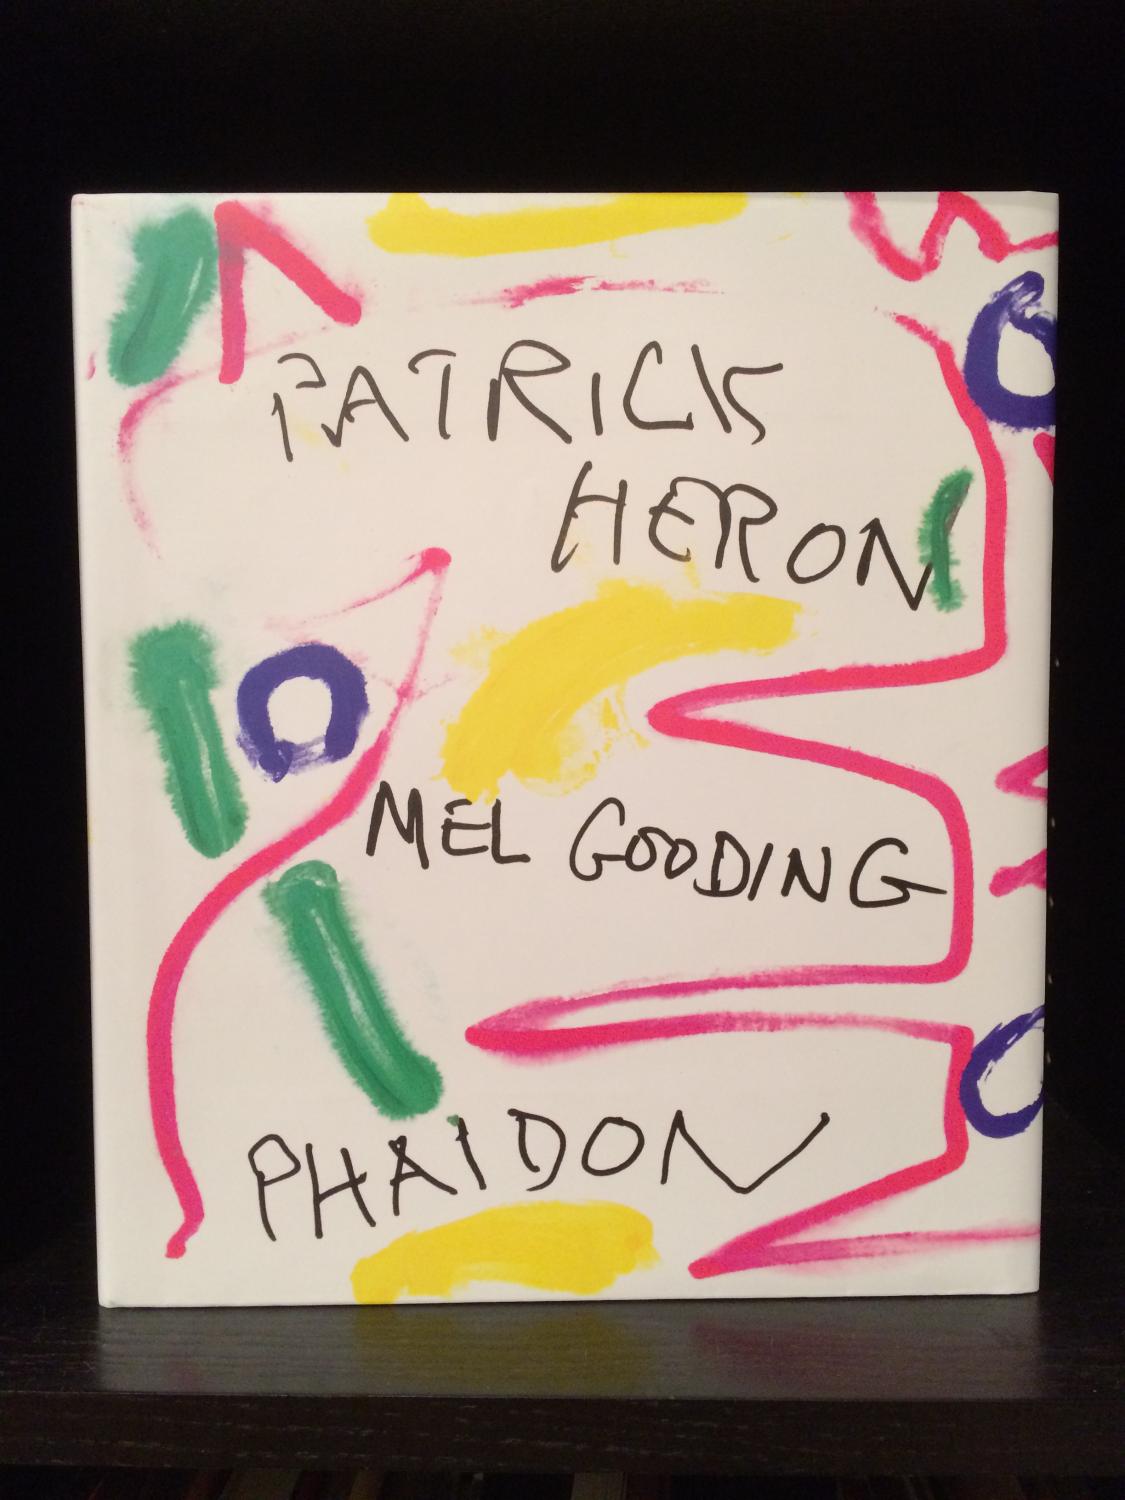 PATRICK
HERON
MEL GOODING
PHAIDON